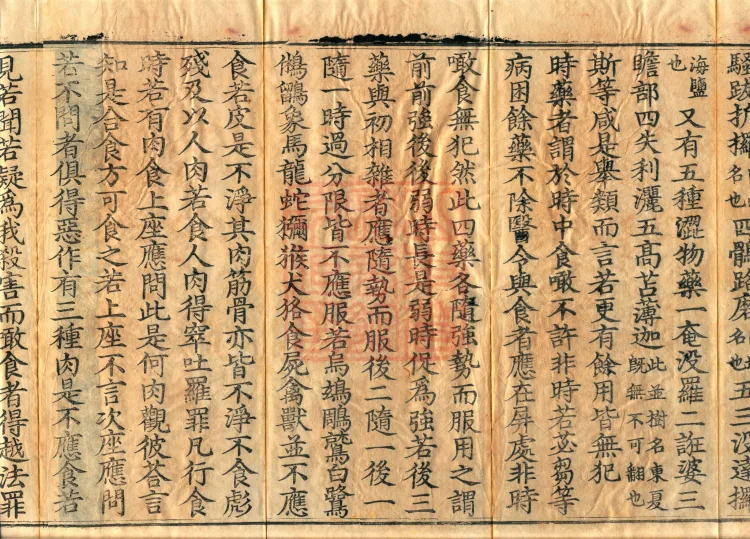 海鹽也又有五種澀物藥一奄没羅二誑婆三
瞻部四失利灑五高苫薄迦此並樹名東夏既無不可翻也
斯等咸是舉類而言若更有餘用皆無犯
時藥者謂於時中食噉不許非時若苾芻等
病困餘藥不除醫令與食者應在屏處非時
噉食無犯然此四藥各隨強勢而服用之謂
前前強後後弱時長是弱時促為強若後三
藥與初相雜者應隨勢而服後二隨一後一
隨一時過分限皆不應服若烏鵄鵰鷲白鷺
鵂鶹象馬龍蛇獼猴犬狢食屍禽獸並不應
食若皮是不淨其肉筋骨亦皆不淨不食彪
殘及以人肉若食人肉得窣吐羅罪凡行食
時若有肉食上座應問此是何肉觀彼荅言
知是合食方可食之若上座不言次座應問
若不問者俱得惡作有三種肉是不應食若
見若聞若疑為我殺害而噉食者得越法罪